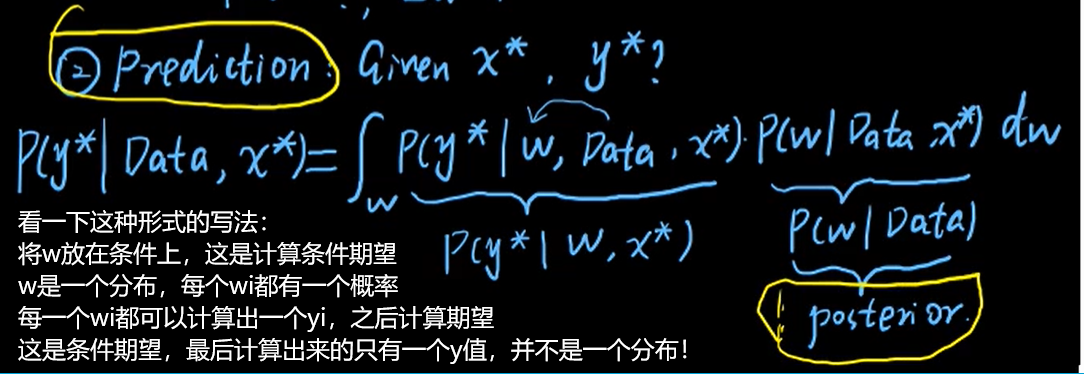 ② Prediction: Given x*, y*?
P(y*| Data, x*)= ∫_w P(y* | w, Data, x*)· P(w | Data, x*) dw
P(y* | w, x*)
P(w | Data)
posterior.
看一下这种形式的写法：
将w放在条件上，这是计算条件期望
w是一个分布，每个wi都有一个概率
每一个wi都可以计算出一个yi，之后计算期望
这是条件期望，最后计算出来的只有一个y值，并不是一个分布！